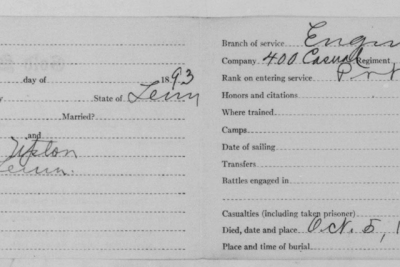 day of 1893
State of Tenn
Married?
and
Upton
Tenn.
Branch of service Engin
Company 400 Casual Regiment
Rank on entering service Pvt
Honors and citations
Where trained
Camps
Date of sailing
Transfers
Battles engaged in
Casualties (including taken prisoner)
Died, date and place Oct. 5, 1
Place and time of burial